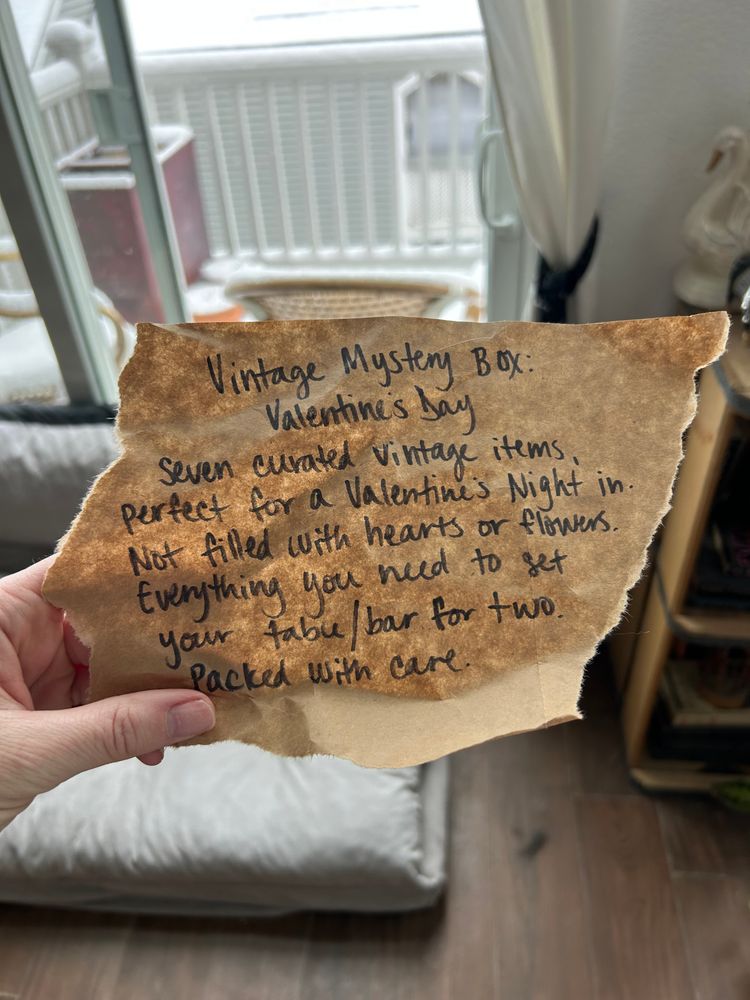 Vintage Mystery Box:
Valentine's Day
Seven curated vintage items,
perfect for a Valentine's Night in.
Not filled with hearts or flowers.
Everything you need to set
your table/bar for two.
Packed with care.